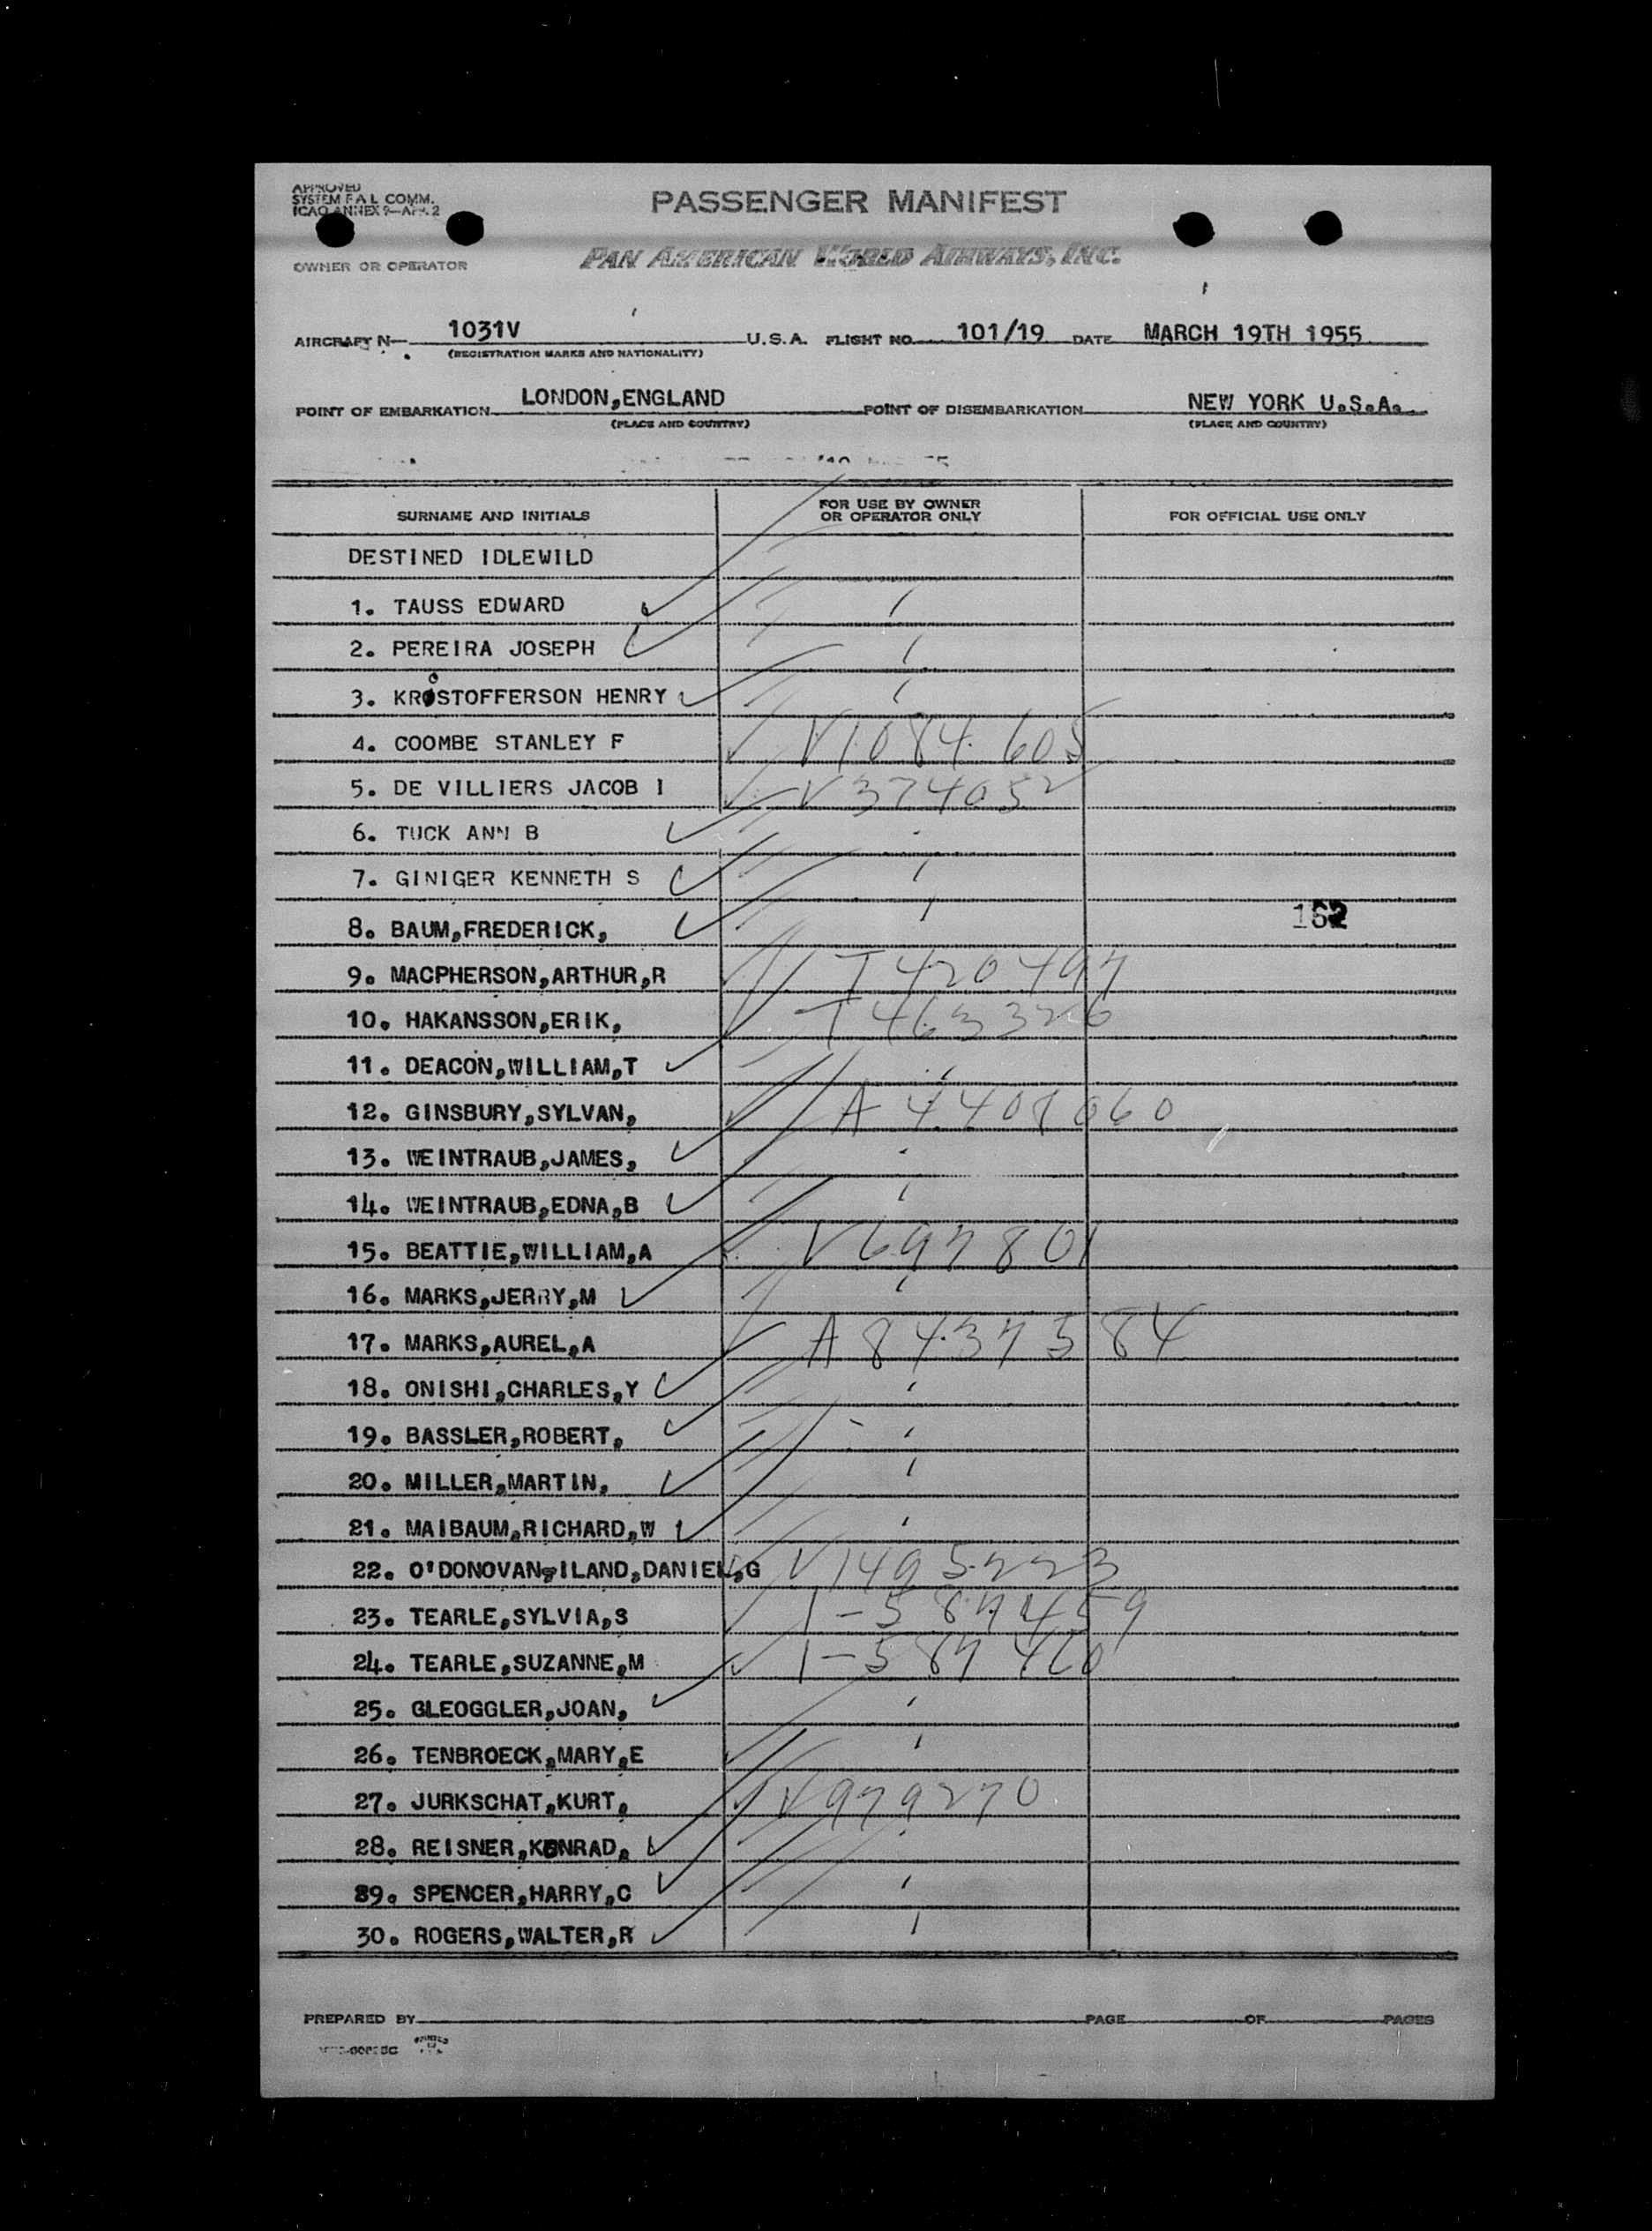 APPROVED
SYSTEM F A L COMM.
ICAO ANNEX 9—APP. 2
PASSENGER MANIFEST
OWNER OR OPERATOR
PAN AMERICAN WORLD AIRWAYS, INC.
AIRCRAFT N— 1031V U.S.A. FLIGHT NO. 101/19 DATE MARCH 19TH 1955
(REGISTRATION MARKS AND NATIONALITY)
POINT OF EMBARKATION LONDON,ENGLAND POINT OF DISEMBARKATION NEW YORK U.S.A.
(PLACE AND COUNTRY) (PLACE AND COUNTRY)
SURNAME AND INITIALS FOR USE BY OWNER OR OPERATOR ONLY FOR OFFICIAL USE ONLY
DESTINED IDLEWILD
1. TAUSS EDWARD
2. PEREIRA JOSEPH
3. KRISTOFFERSON HENRY
4. COOMBE STANLEY F V1084605
5. DE VILLIERS JACOB I V374052
6. TUCK ANN B
7. GINIGER KENNETH S
8. BAUM,FREDERICK, 162
9. MACPHERSON,ARTHUR,R T420497
10. HAKANSSON,ERIK, T463326
11. DEACON,WILLIAM,T
12. GINSBURY,SYLVAN, A4408060
13. WEINTRAUB,JAMES,
14. WEINTRAUB,EDNA,B
15. BEATTIE,WILLIAM,A V697801
16. MARKS,JERRY,M
17. MARKS,AUREL,A A8437584
18. ONISHI,CHARLES,Y
19. BASSLER,ROBERT,
20. MILLER,MARTIN,
21. MAIBAUM,RICHARD,W
22. O'DONOVAN,ILAND,DANIEL,G V1495223
23. TEARLE,SYLVIA,S 1-587459
24. TEARLE,SUZANNE,M 1-587460
25. GLEOGGLER,JOAN,
26. TENBROECK,MARY,E
27. JURKSCHAT,KURT, V979270
28. REISNER,KONRAD,
29. SPENCER,HARRY,C
30. ROGERS,WALTER,R
PREPARED BY PAGE OF PAGES